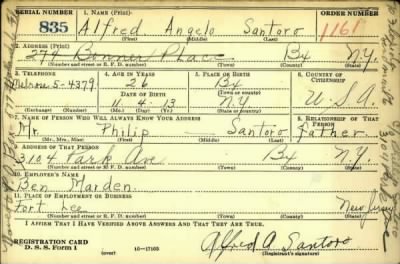 SERIAL NUMBER 1. NAME (Print) ORDER NUMBER
835 Alfred Angelo Santoro 1161
(First) (Middle) (Last)
2. ADDRESS (Print)
279 Bonner Place Bx N.Y.
(Number and street or R. F. D. number) (Town) (County) (State)
3. TELEPHONE 4. AGE IN YEARS 5. PLACE OF BIRTH 6. COUNTRY OF CITIZENSHIP
Melrose 5-4379 26 Bx
DATE OF BIRTH (Town or county)
11 4 13 N.Y. U.S.A
(Exchange) (Number) (Mo.) (Day) (Yr.) (State or country)
7. NAME OF PERSON WHO WILL ALWAYS KNOW YOUR ADDRESS 8. RELATIONSHIP OF THAT PERSON
Mr. Philip Santoro Father
(Mr., Mrs., Miss) (First) (Middle) (Last)
9. ADDRESS OF THAT PERSON
3104 Park Ave Bx N.Y.
(Number and street or R. F. D. number) (Town) (County) (State)
10. EMPLOYER'S NAME
Ben Marden
11. PLACE OF EMPLOYMENT OR BUSINESS
Fort Lee New Jersey
(Number and street or R. F. D. number) (Town) (County) (State)
I AFFIRM THAT I HAVE VERIFIED ABOVE ANSWERS AND THAT THEY ARE TRUE.
REGISTRATION CARD
D. S. S. Form 1 (over) 16-17105 Alfred A Santoro
(Registrant's signature)